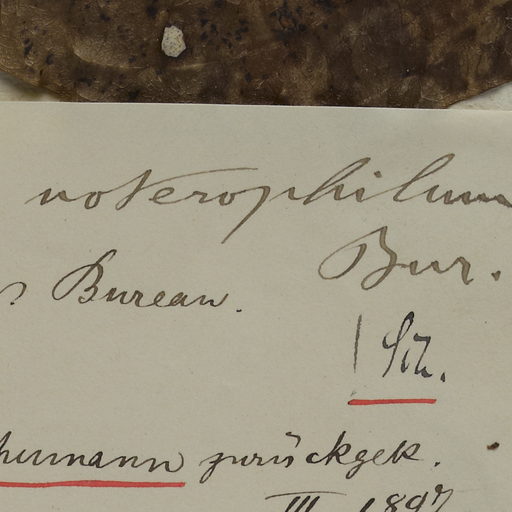 noterophilum
Bur.
s Bureau.
humann zurückgek.
III. 1897